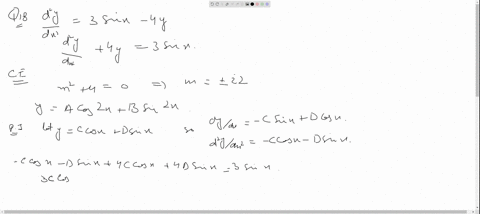 Q18 d²y/dx² = 3 Sinx - 4y
d²y/dx² + 4y = 3 Sinx.
CE m² + 4 = 0 => m = ± i2
y = A Cos 2x + B Sin 2x.
P.I let y = C Cosx + D Sinx so dy/dx = -C Sinx + D Cosx.
d²y/dx² = -C Cosx - D Sinx.
-C Cosx - D Sinx + 4C Cosx + 4D Sinx = 3 Sinx.
3C Cos